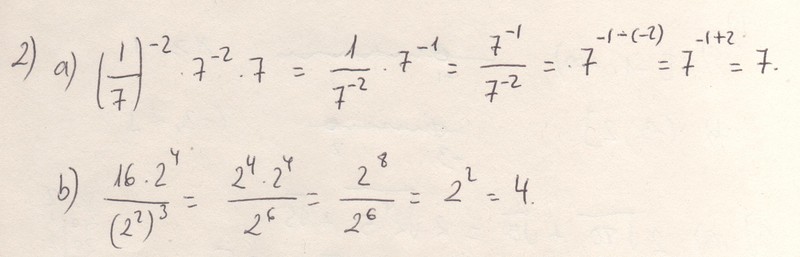 2) a) (1/7)^-2 · 7^-2 · 7 = 1/7^-2 · 7^-1 = 7^-1/7^-2 = · 7^-1-(-2) = 7^-1+2 = 7.
b) 16 · 2^4/(2^2)^3 = 2^4 · 2^4/2^6 = 2^8/2^6 = 2^2 = 4.